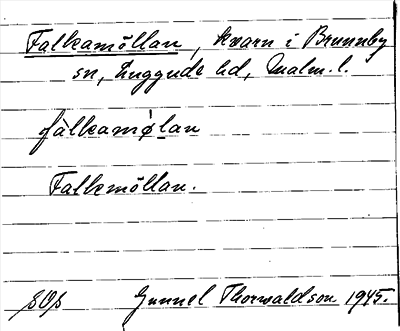 Falkamöllan, kvarn i Brunnby
sn, Luggude hd, Malm. l.
fàlkamø̀lan
Falkmöllan.
Gunnel Thorwaldson 1945.